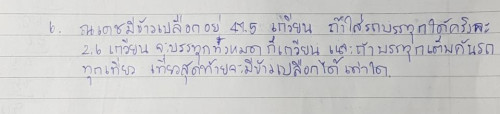 6. ณเดชมีข้าวเปลือกอยู่ 45.5 เกวียน ถ้าใส่รถบรรทุกได้ครั้งละ
2.6 เกวียน จะบรรทุกทั้งหมดกี่เกวียน และถ้าบรรทุกเต็มคันรถ
ทุกเที่ยว เที่ยวสุดท้ายจะมีข้าวเปลือกได้เท่าใด